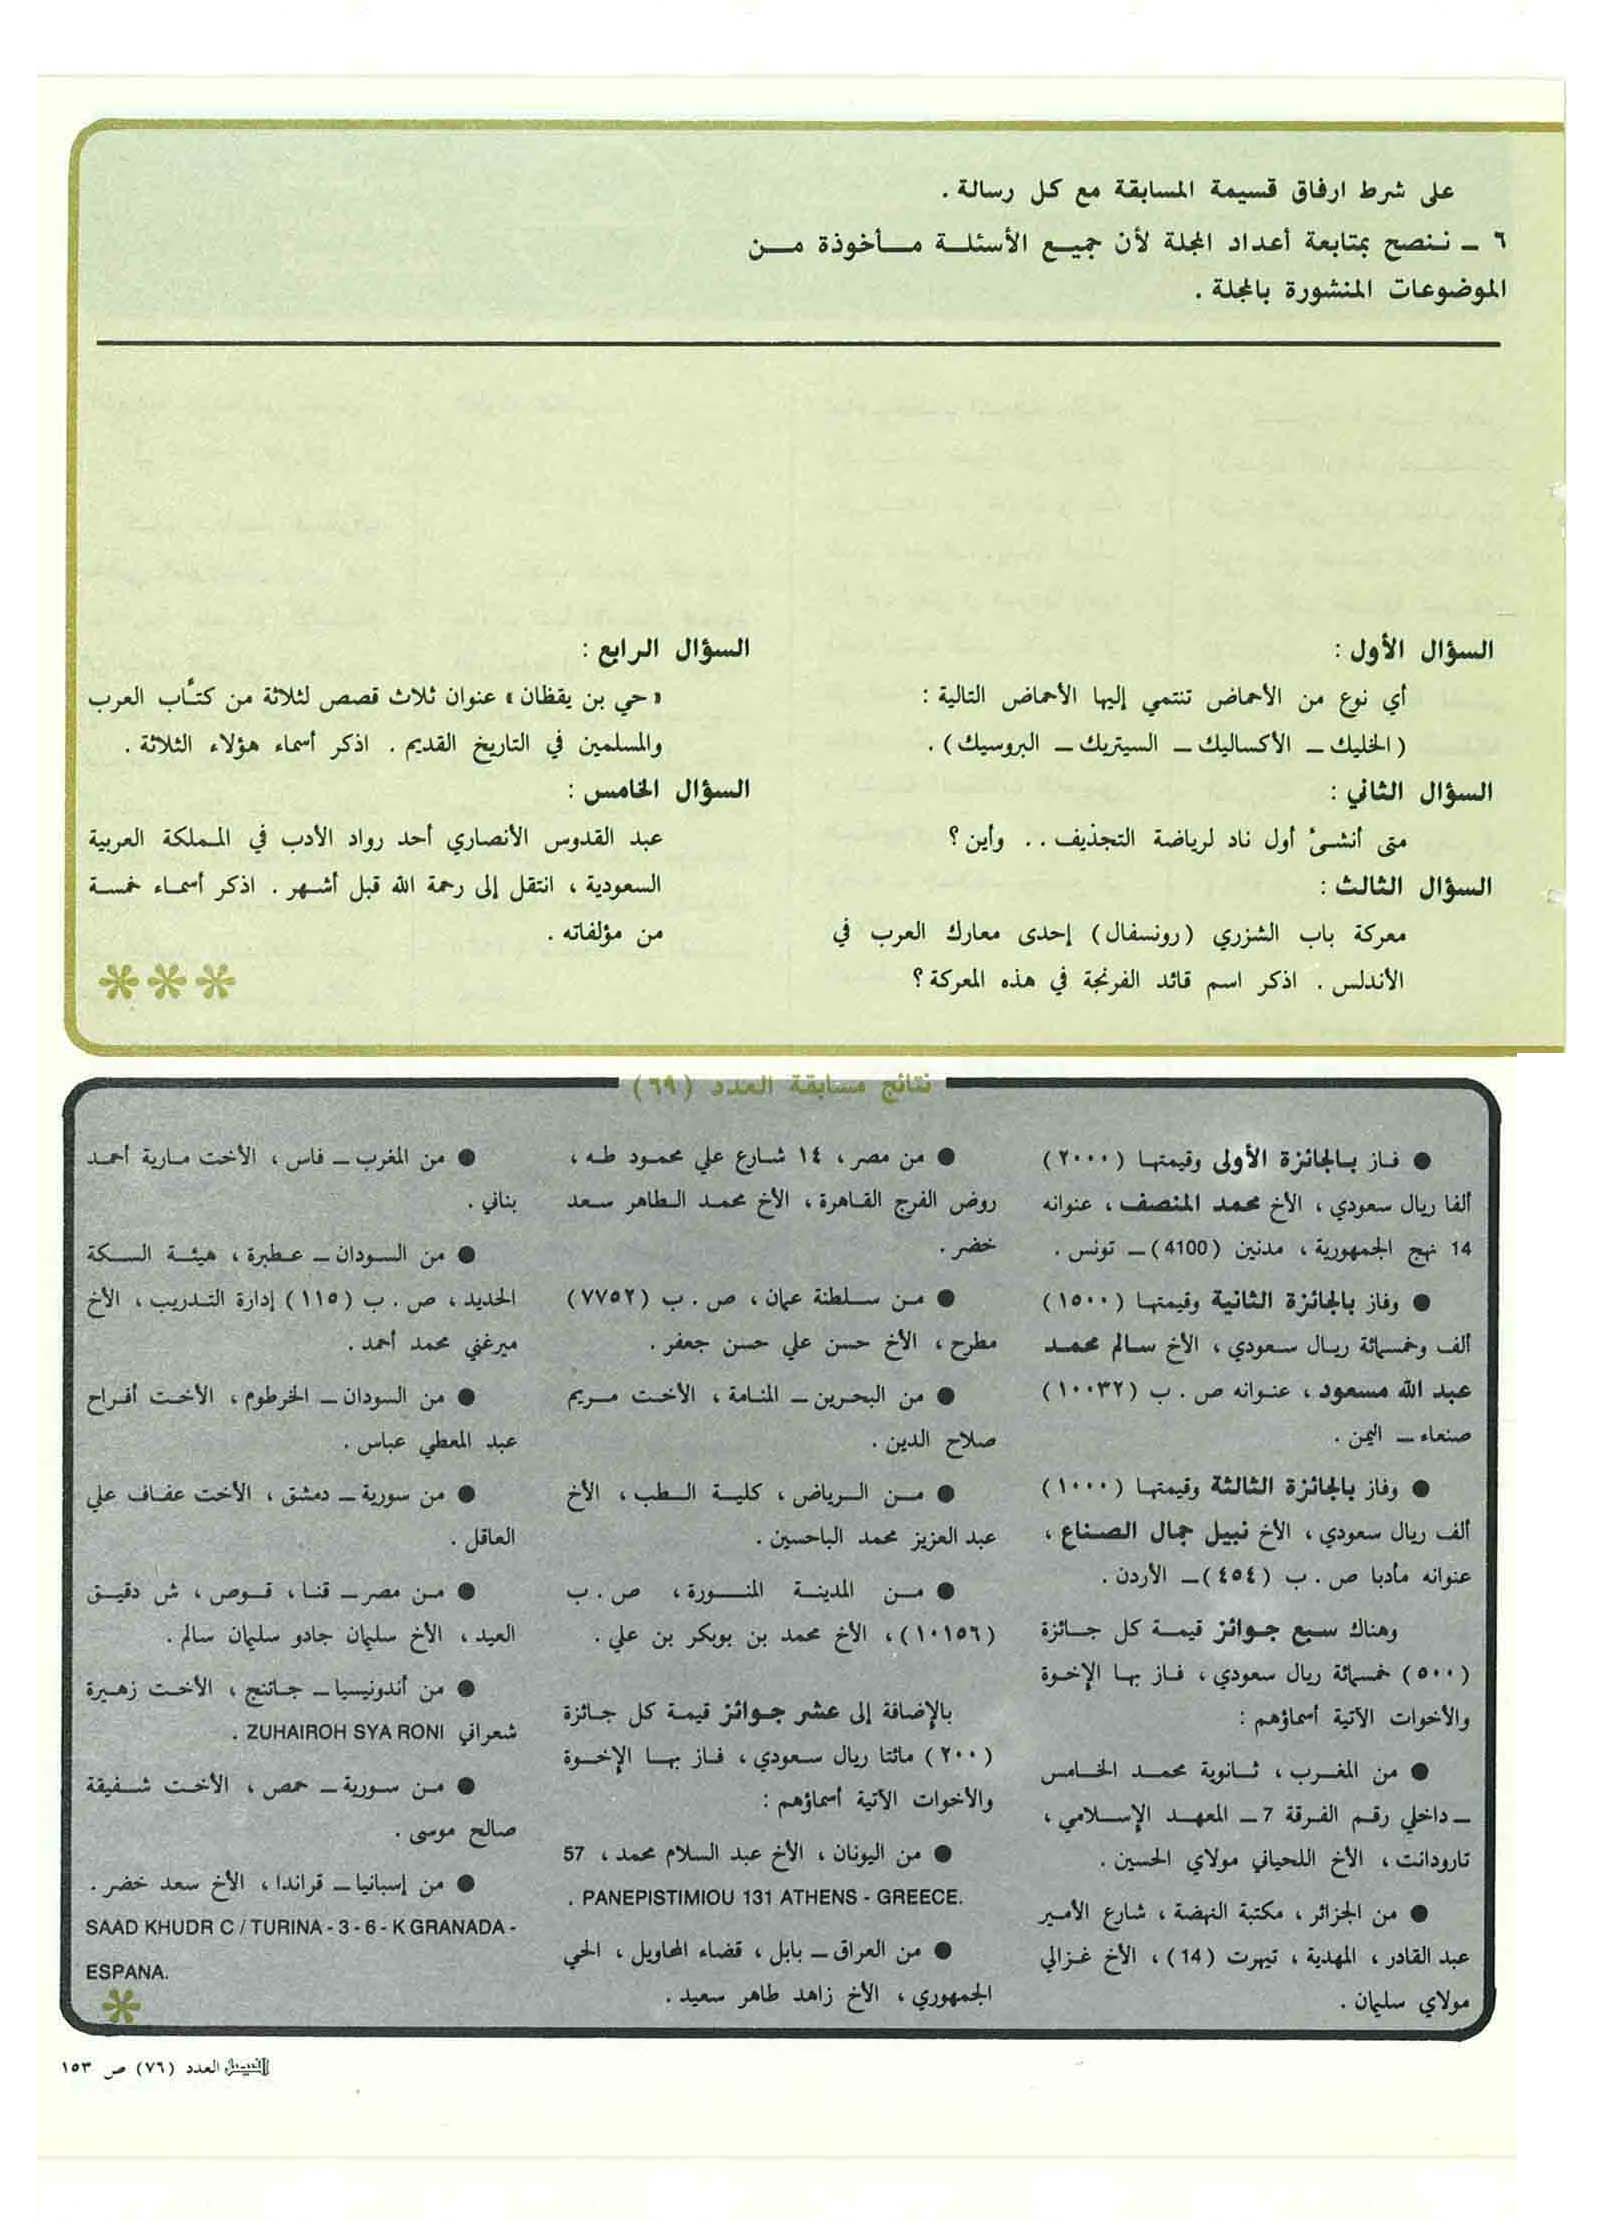 على شرط ارفاق قسيمة المسابقة مع كل رسالة .
٦ ــ ننصح بمتابعة أعداد المجلة لأن جميع الأسئلة مأخوذة من
الموضوعات المنشورة بالمجلة .
السؤال الأول :
أي نوع من الأحماض تنتمي إليها الأحماض التالية :
( الخليك ــ الأكساليك ــ السيتريك ــ البروسيك ) .
السؤال الثاني :
متى أنشئ أول ناد لرياضة التجذيف . . وأين ؟
السؤال الثالث :
معركة باب الشزري ( رونسفال ) إحدى معارك العرب في
الأندلس . اذكر اسم قائد الفرنجة في هذه المعركة ؟
السؤال الرابع :
« حي بن يقظان » عنوان ثلاث قصص لثلاثة من كتّاب العرب
والمسلمين في التاريخ القديم . اذكر أسماء هؤلاء الثلاثة .
السؤال الخامس :
عبد القدوس الأنصاري أحد رواد الأدب في المملكة العربية
السعودية ، انتقل إلى رحمة الله قبل أشهر . اذكر أسماء خمسة
من مؤلفاته .
نتائج مسابقة العدد (٦٩)
● فاز بالجائزة الأولى وقيمتها (٢٠٠٠)
ألفا ريال سعودي ، الأخ محمد المنصف ، عنوانه
14 نهج الجمهورية ، مدنين (4100) ــ تونس .
● وفاز بالجائزة الثانية وقيمتها (١٥٠٠)
ألف وخمسمائة ريال سعودي ، الأخ سالم محمد
عبد الله مسعود ، عنوانه ص . ب (١٠٠٣٢)
صنعاء ــ اليمن .
● وفاز بالجائزة الثالثة وقيمتها (١٠٠٠)
ألف ريال سعودي ، الأخ نبيل جمال الصناع ،
عنوانه مأدبا ص . ب (٤٥٤) ــ الأردن .
وهناك سبع جوائز قيمة كل جائزة
(٥٠٠) خمسمائة ريال سعودي ، فاز بها الإخوة
والأخوات الآتية أسماؤهم :
● من المغرب ، ثانوية محمد الخامس
ــ داخلي رقم الفرقة 7 ــ المعهد الإسلامي ،
تارودانت ، الأخ اللحياني مولاي الحسين .
● من الجزائر ، مكتبة النهضة ، شارع الأمير
عبد القادر ، المهدية ، تيهرت (14) ، الأخ غزالي
مولاي سليمان .
● من مصر ، ١٤ شارع علي محمود طه ،
روض الفرج القاهرة ، الأخ محمد الطاهر سعد
خضر .
● من سلطنة عمان ، ص . ب (٧٧٥٢)
مطرح ، الأخ حسن علي حسن جعفر .
● من البحرين ــ المنامة ، الأخت مريم
صلاح الدين .
● من الرياض ، كلية الطب ، الأخ
عبد العزيز محمد الباحسين .
● من المدينة المنورة ، ص . ب
(١٠١٥٦) ، الأخ محمد بن بوبكر بن علي .
بالإضافة إلى عشر جوائز قيمة كل جائزة
(٢٠٠) مائتا ريال سعودي ، فاز بها الإخوة
والأخوات الآتية أسماؤهم :
● من اليونان ، الأخ عبد السلام محمد ، 57
PANEPISTIMIOU 131 ATHENS - GREECE. .
● من العراق ــ بابل ، قضاء المحاويل ، الحي
الجمهوري ، الأخ زاهد طاهر سعيد .
● من المغرب ــ فاس ، الأخت مارية أحمد
بناني .
● من السودان ــ عطبرة ، هيئة السكة
الحديد ، ص . ب (١١٥) إدارة التدريب ، الأخ
ميرغني محمد أحمد .
● من السودان ــ الخرطوم ، الأخت أفراح
عبد المعطي عباس .
● من سورية ــ دمشق ، الأخت عفاف علي
العاقل .
● من مصر ــ قنا ، قوص ، ش دقيق
العيد ، الأخ سليمان جادو سليمان سالم .
● من أندونيسيا ــ جاتنج ، الأخت زهيرة
شعراني ZUHAIROH SYA RONI .
● من سورية ــ حمص ، الأخت شفيقة
صالح موسى .
● من إسبانيا ــ قراندا ، الأخ سعد خضر .
SAAD KHUDR C / TURINA - 3 - 6 - K GRANADA -
ESPANA.
الفيصل العدد (٧٦) ص ١٥٣